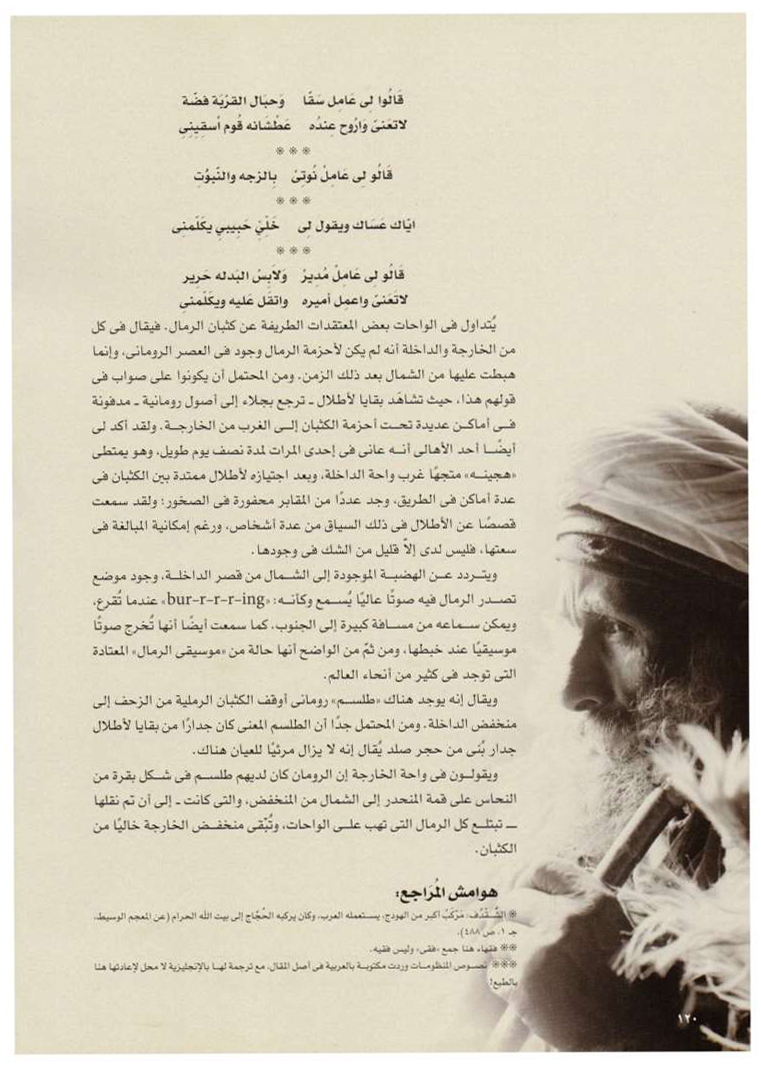 قَالُوا لِى عَامِل سَقَّا وَحبَال القرْبَة فضّة
لاتعَنىّ وَارُوح عِندُه عَطْشَانه قُوم أسقِينِى
***
قَالُو لِى عَامِلْ نُوتِىْ بِالزجه والنّبوُت
***
ايّاك عَسَاك ويقول لِى خَلّىِ حَبيبىِ يكَلّمنِى
***
قَالُو لِى عَامِلْ مُدِيرْ وَلاَبِسْ البَدله حَرير
لاتَعَنىّ واعمِل أميره واتقَل عَليه ويكَلّمنِى
يُتداول فى الواحات بعض المعتقدات الطريفة عن كثبان الرمال. فيقال فى كل
من الخارجة والداخلة أنه لم يكن لأحزمة الرمال وجود فى العصر الرومانى، وإنما
هبطت عليها من الشمال بعد ذلك الزمن. ومن المحتمل أن يكونوا على صواب فى
قولهم هذا، حيث تشاهَد بقايا لأطلال ـ ترجع بجلاء إلى أصول رومانية ـ مدفونة
فى أماكن عديدة تحت أحزمة الكثبان إلى الغرب من الخارجة. ولقد أكد لى
أيضًا أحد الأهالى أنه عانى فى إحدى المرات لمدة نصف يوم طويل، وهو يمتطى
«هجينه» متجهًا غرب واحة الداخلة، وبعد اجتيازه لأطلال ممتدة بين الكثبان فى
عدة أماكن فى الطريق، وجد عددًا من المقابر محفورة فى الصخور؛ ولقد سمعت
قصصًا عن الأطلال فى ذلك السياق من عدة أشخاص، ورغم إمكانية المبالغة فى
سعتها، فليس لدى إلاّ قليل من الشك فى وجودها.
ويتردد عن الهضبة الموجودة إلى الشمال من قصر الداخلة، وجود موضع
تصدر الرمال فيه صوتًا عاليًا يُسمع وكأنه: «bur-r-r-r-ing» عندما تُقرع،
ويمكن سماعه من مسافة كبيرة إلى الجنوب، كما سمعت أيضًا أنها تُخرج صوتًا
موسيقيًا عند خبطها، ومن ثمّ من الواضح أنها حالة من «موسيقى الرمال» المعتادة
التى توجد فى كثير من أنحاء العالم.
ويقال إنه يوجد هناك «طلسم» رومانى أوقف الكثبان الرملية من الزحف إلى
منخفض الداخلة. ومن المحتمل جدًا أن الطلسم المعنى كان جدارًا من بقايا لأطلال
جدار بُنى من حجر صلد يُقال إنه لا يزال مرئيًا للعيان هناك.
ويقولون فى واحة الخارجة إن الرومان كان لديهم طلسم فى شكل بقرة من
النحاس على قمة المنحدر إلى الشمال من المنخفض، والتى كانت ـ إلى أن تم نقلها
ـ تبتلع كل الرمال التى تهب على الواحات، وتُبْقى منخفض الخارجة خاليًا من
الكثبان.
هوامش المُرَاجع:
* الشُّقْدُف: مَرْكَبٌ أكبر من الهودج، يستعمله العرب، وكان يركبه الحُجَّاج إلى بيت الله الحرام (عن المعجم الوسيط،
جـ ١، ص ٤٨٨).
** فقهاء هنا جمع «فقى» وليس فقيه.
*** نصوص المنظومات وردت مكتوبة بالعربية فى أصل المقال، مع ترجمة لها بالإنجليزية لا محل لإعادتها هنا
بالطبع!
١٢٠